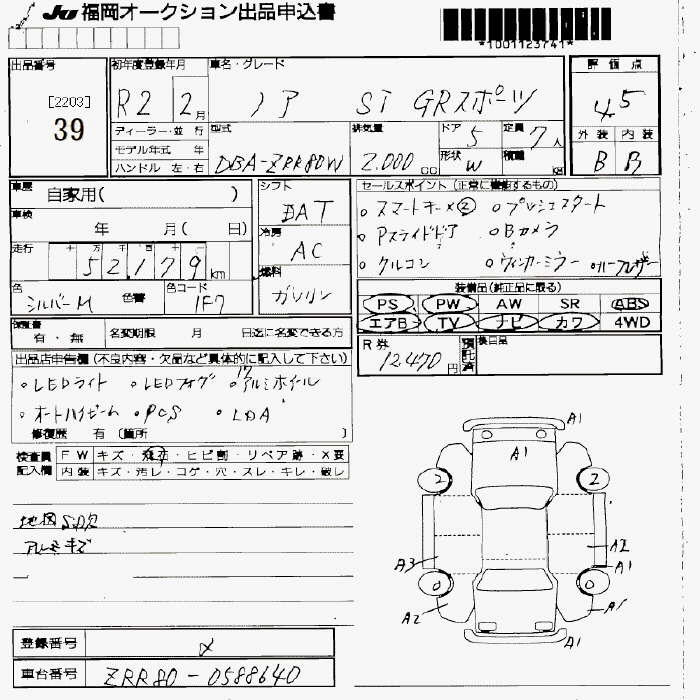 JU 福岡オークション出品申込書
*1001123741*
出品番号 初年度登録年月 車名・グレード 評価点
[2203]
39
R2 2月 ノア SI GRスポーツ 4.5
ディーラー・並行 型式 排気量 ドア 5 定員 7人 外装 内装
モデル年式 年 形状 W 積載 B B
ハンドル 左・右 DBA-ZRR80W 2.000 CC
車歴 自家用( ) シフト セールスポイント(正常に機能するもの)
DAT 。スマートキー×② 。プッシュスタート
車検 年 月( 日) 冷房 AC 。Pスライドドア 。Bカメラ
走行 52,179km 燃料 。クルコン 。ウィンカーミラー 。ハーフレザー
色 シルバーM 色替 色コード 1F7 ガソリン
装備品(純正品に限る)
PS PW AW SR ABS
エアB TV ナビ カワ 4WD
保証書 有・無 名変期限 月 日迄に名変できる方
R券 12,470円 預託済 検目品
出品店申告欄(不良内容・欠品など具体的に記入して下さい)
。LEDライト 。LEDフォグ 。17アルミホイール
。オートハイビーム 。PCS 。LDA
修復歴 有 〔箇所 〕
検査員記入欄 FW キズ・飛石・ヒビ割・リペア跡・X要
内装 キズ・汚レ・コゲ・穴・スレ・キレ・破レ
地図SD欠
アルミキズ
A1
A1
2 2
A2
A3 A1
0 0
A2 A1
A1
登録番号
車台番号 ZRR80-0588640